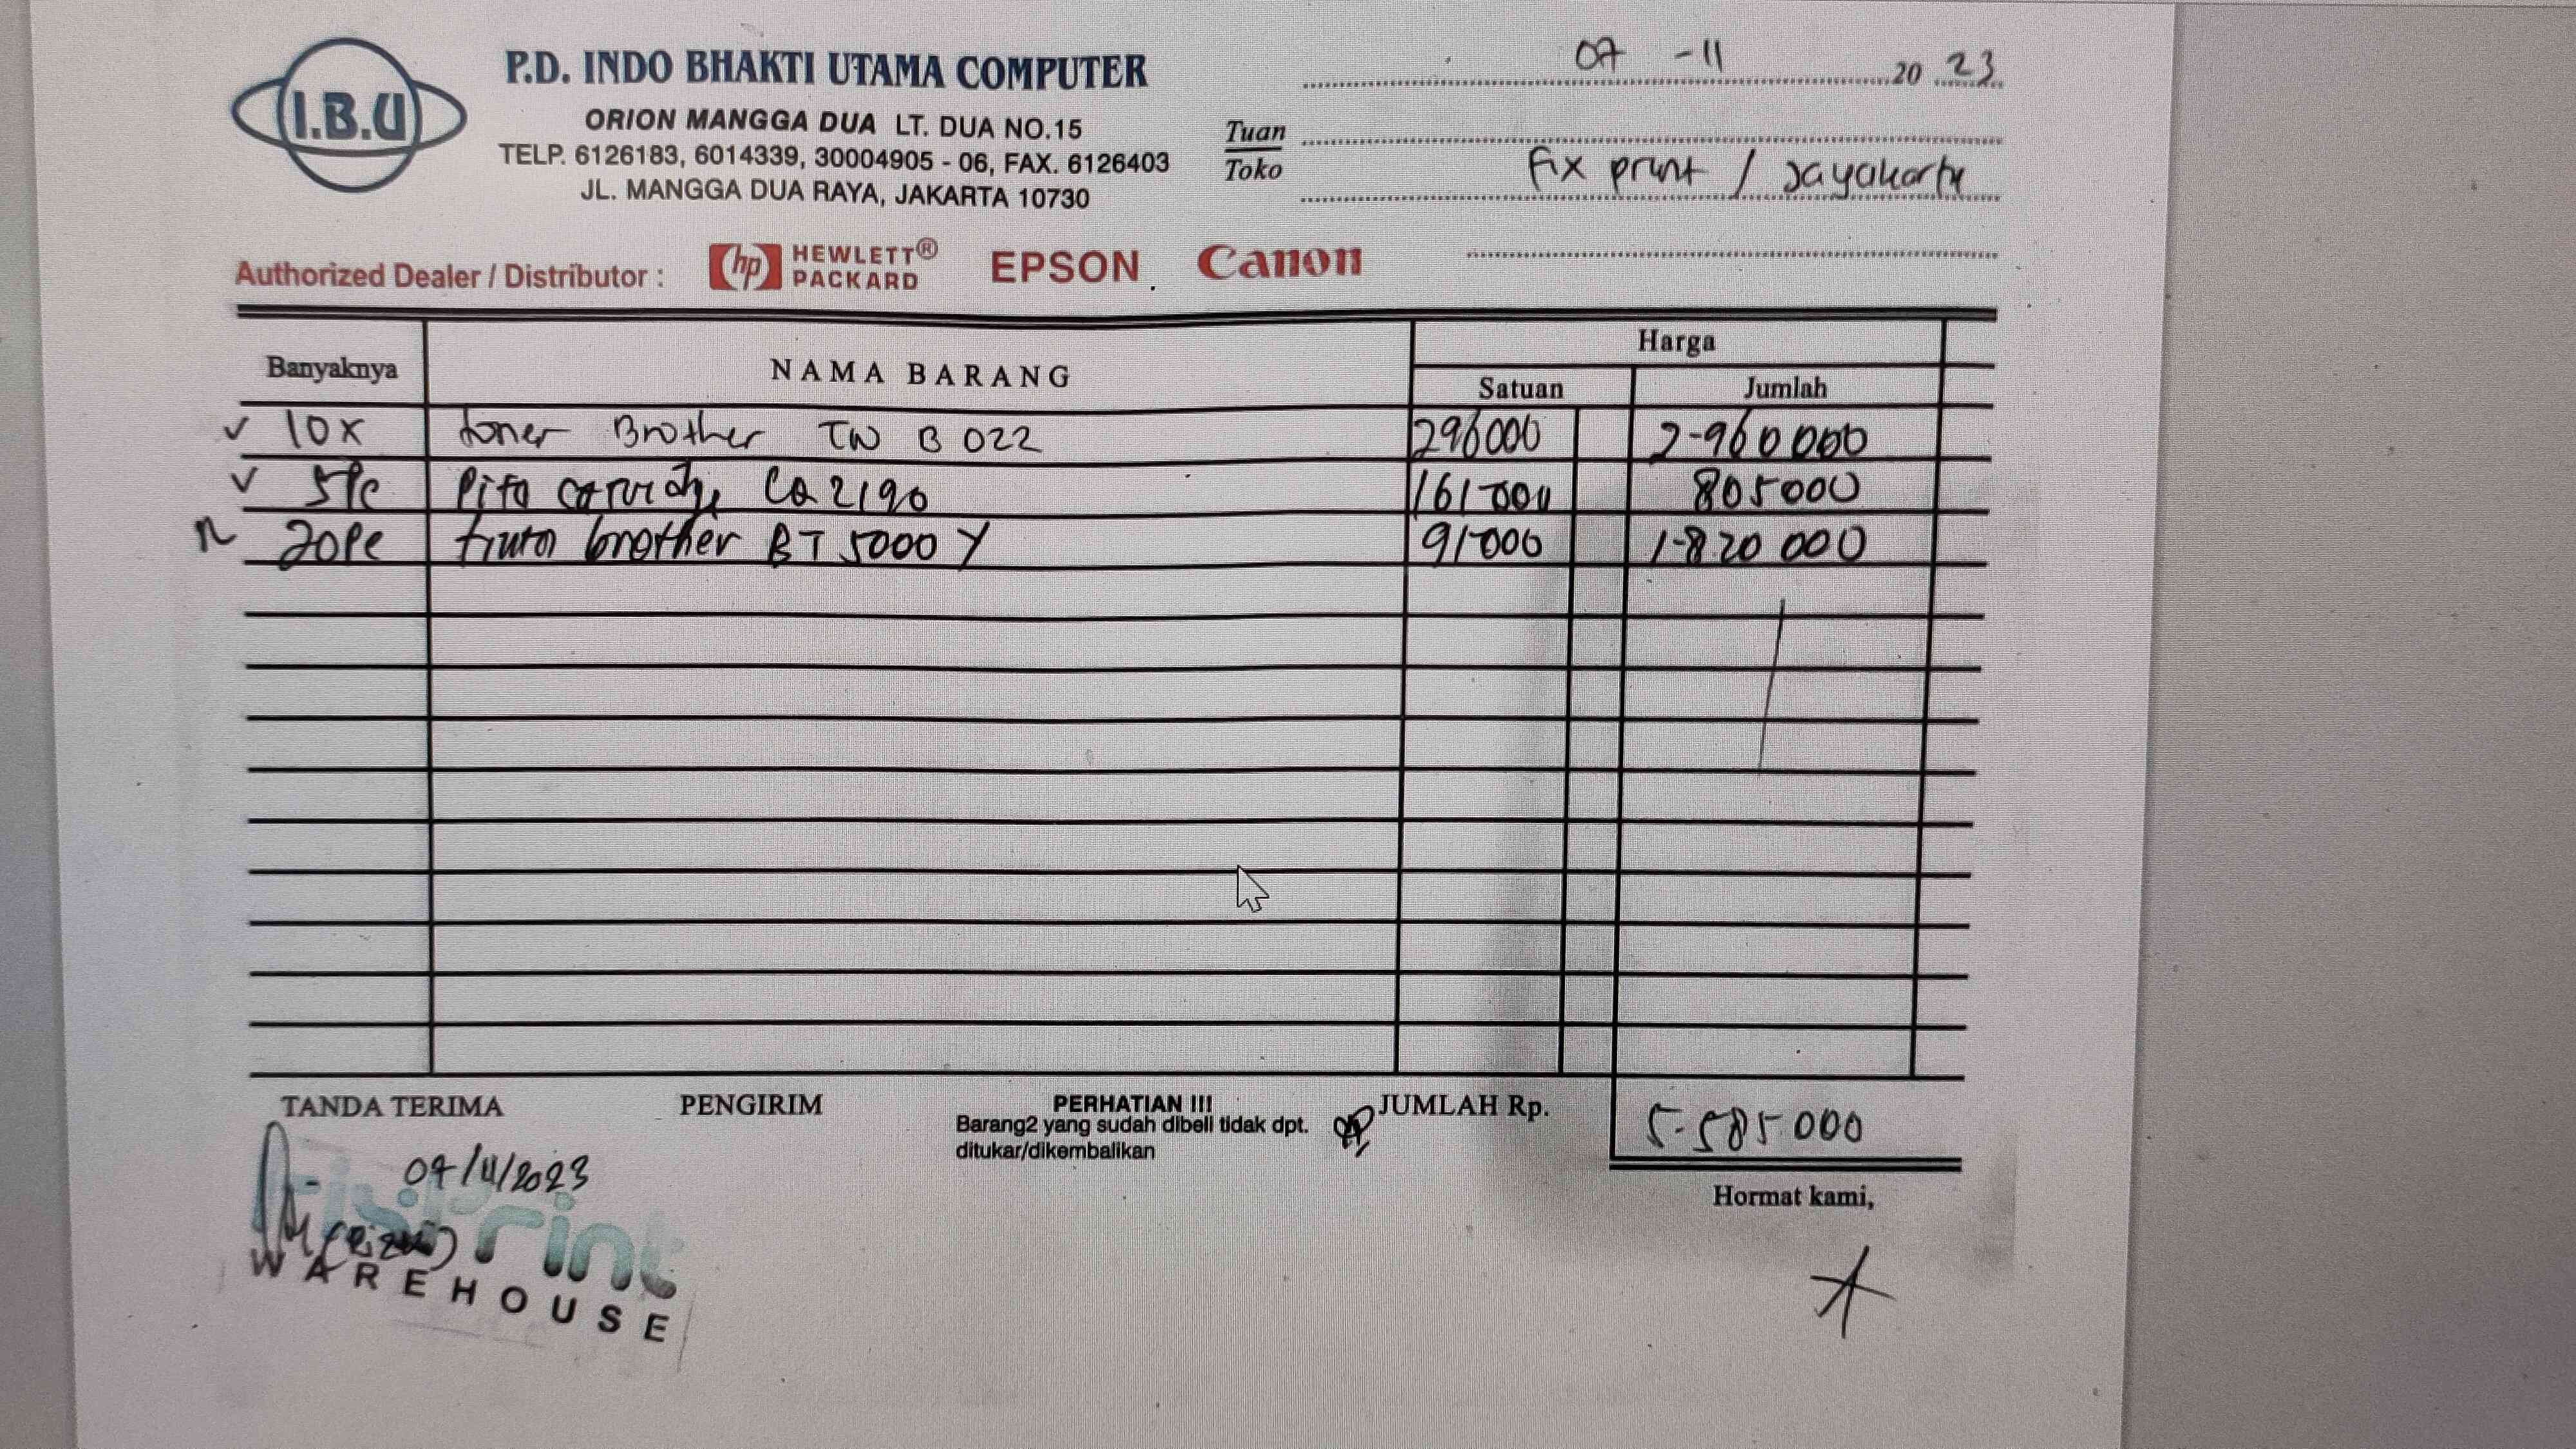 I.B.U
P.D. INDO BHAKTI UTAMA COMPUTER
ORION MANGGA DUA LT. DUA NO.15
TELP. 6126183, 6014339, 30004905 - 06, FAX. 6126403
JL. MANGGA DUA RAYA, JAKARTA 10730
07 -11 20 23
Tuan
Toko
Fix print / Jayakarta
Authorized Dealer / Distributor : hp HEWLETT® PACKARD EPSON Canon
Banyaknya NAMA BARANG Harga
Satuan Jumlah
10x toner Brother TN B 022 296000 2-960 000
5pc Pita LQ 2190 161-000 805000
20pc brother BT 5000 Y 91-000 1-820 000
TANDA TERIMA PENGIRIM PERHATIAN !!! JUMLAH Rp. 5-585.000
Barang2 yang sudah dibeli tidak dpt.
ditukar/dikembalikan
07/11/2023
Hormat kami,
Fixprint
WAREHOUSE